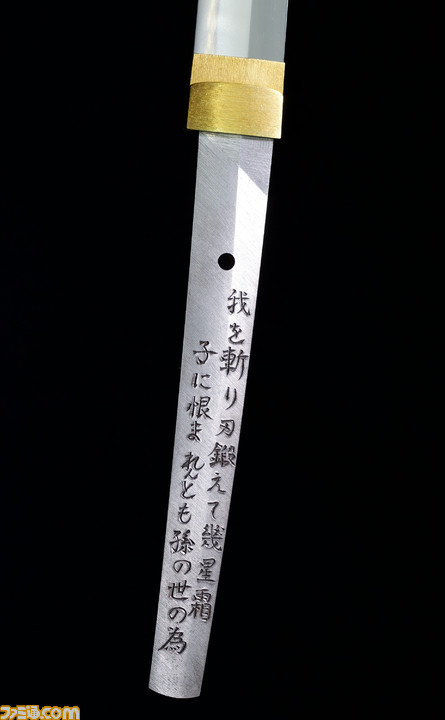 我を斬り刃鍛えて幾星霜
子に恨まれんとも孫の世の為
ファミ通.com